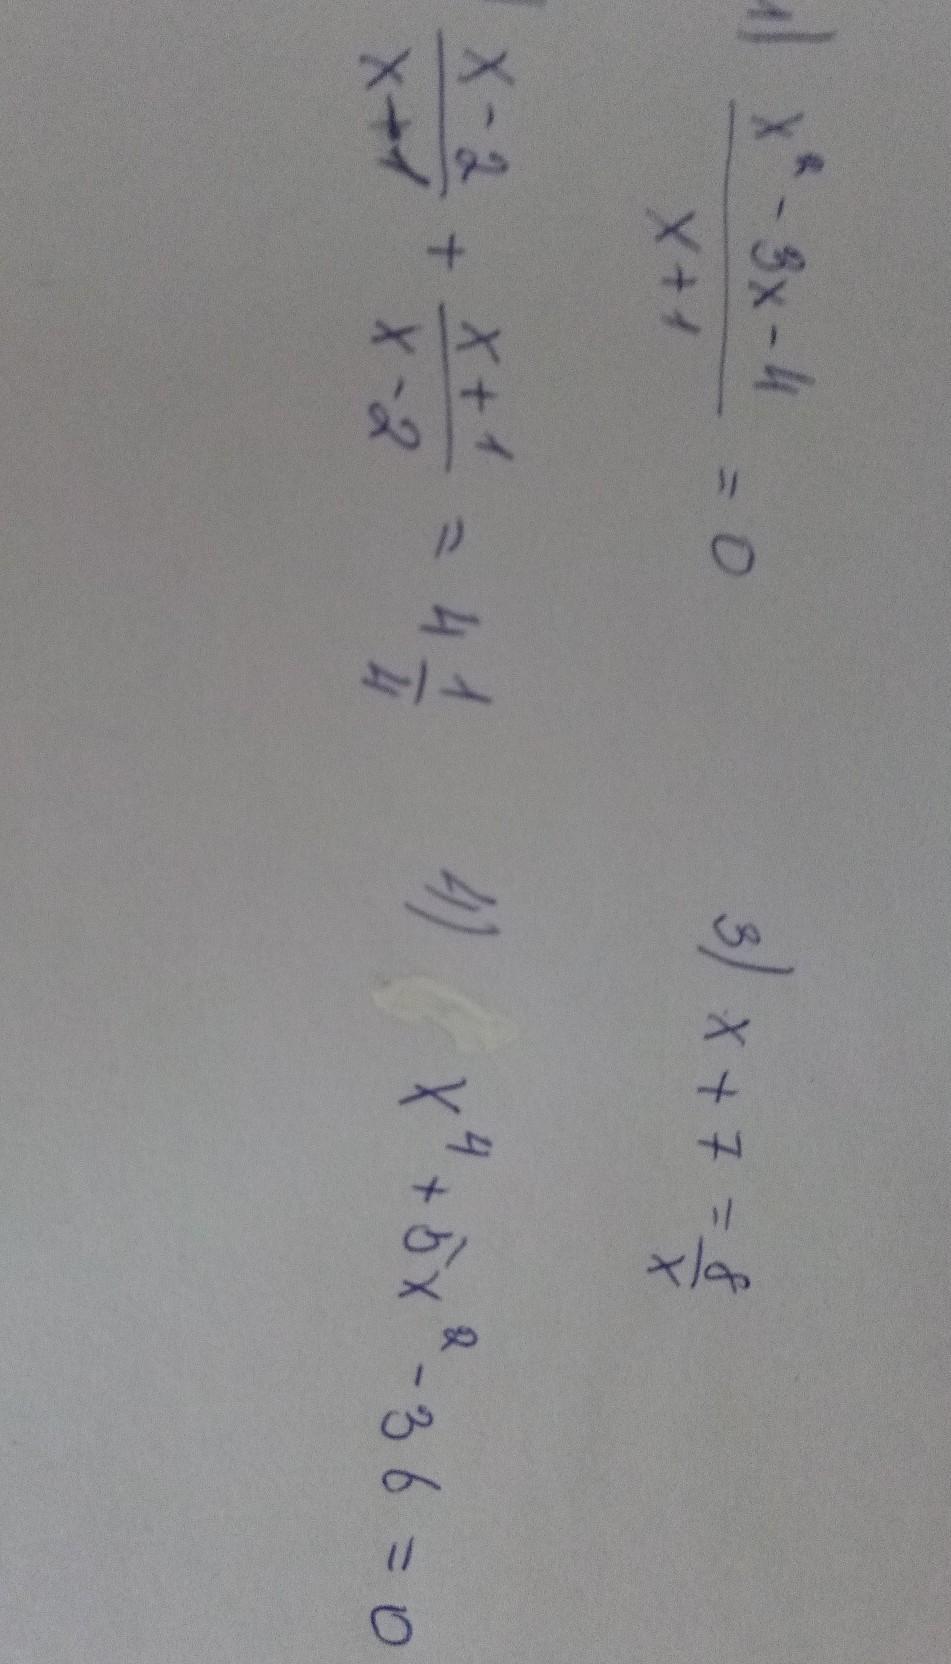 1) (x² - 3x - 4)/(x + 1) = 0
(x - 2)/(x + 1) + (x + 1)/(x - 2) = 4 1/4
3) x + 7 = 8/x
4) x⁴ + 5x² - 36 = 0